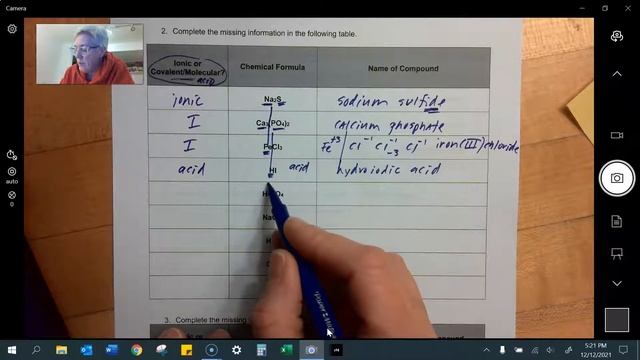 Camera
2. Complete the missing information in the following table.
Ionic or Covalent/Molecular? acid
Chemical Formula
Name of Compound
ionic Na₂S sodium sulfide
I Ca₃(PO₄)₂ calcium phosphate
I FeCl₃ Fe⁺³ Cl⁻¹ Cl⁻¹ Cl⁻¹ -3 iron (III) chloride
acid HI acid hydroiodic acid
3. Complete the missing
auto
0
5:21 PM
12/12/2021